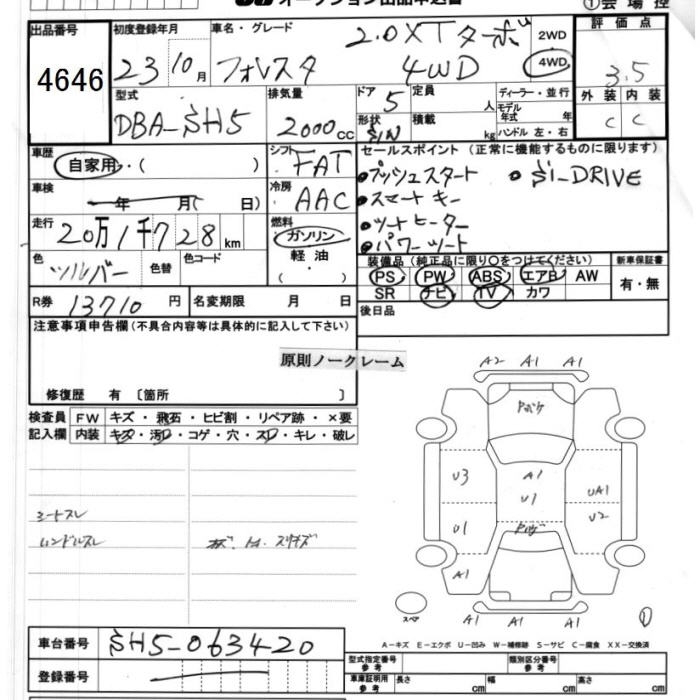 オークション出品申込書
①会場控
出品番号 4646
初度登録年月 23 10月
車名・グレード フォレスタ 2.0XTターボ 4WD
2WD 4WD
評価点 3.5
外装 内装
C C
型式 DBA-SH5
排気量 2000cc
ドア 5
形状 S/W
定員 人
積載 kg
ディーラー・並行
モデル年式 年式
ハンドル 左・右
車歴 自家用・( )
車検 年 月( 日)
走行 20万1千728km
色 シルバー 色替 色コード
R券 13710円 名変期限 月 日
シフト FAT
冷房 AAC
燃料 ガソリン
軽油
・( )
セールスポイント(正常に機能するものに限ります)
●プッシュスタート ●Si-DRIVE
●スマートキー
●シートヒーター
●パワーシート
装備品(純正品に限り〇をつけてください) 新車保証書
PS PW ABS エアB AW 有・無
SR ナビ TV カワ
後日品
注意事項申告欄(不具合内容等は具体的に記入して下さい)
原則ノークレーム
修復歴 有 〔箇所 〕
検査員記入欄
FW キズ・飛石・ヒビ割・リペア跡・×要
内装 キズ・汚レ・コゲ・穴・スレ・キレ・破レ
シートスレ
ハンドルスレ
A2 A1 A1
U3 A1 UA1
U1 U1 U2
A1
スペア
A1 A1 A1
A-キズ E-エクボ U-凹み W-補修跡 S-サビ C-腐食 XX-交換済
車台番号 SH5-063420
登録番号
型式指定番号 参考 類別区分番号 参考
車庫証明用 参考 長さ cm 幅 cm 高さ cm